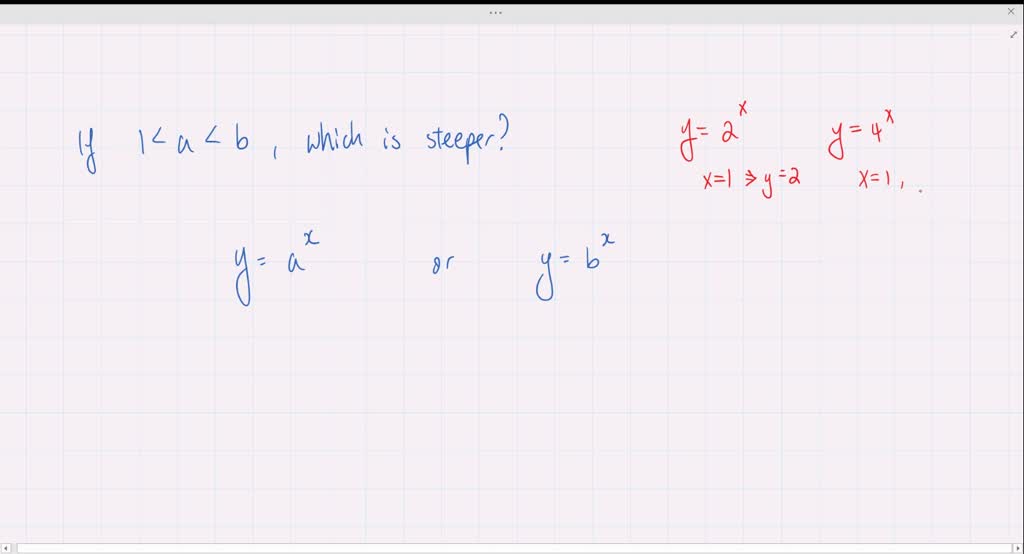 If 1 < a < b, which is steeper?
y = a^x or y = b^x
y = 2^x y = 4^x
x=1 ⇒ y=2 x=1, .